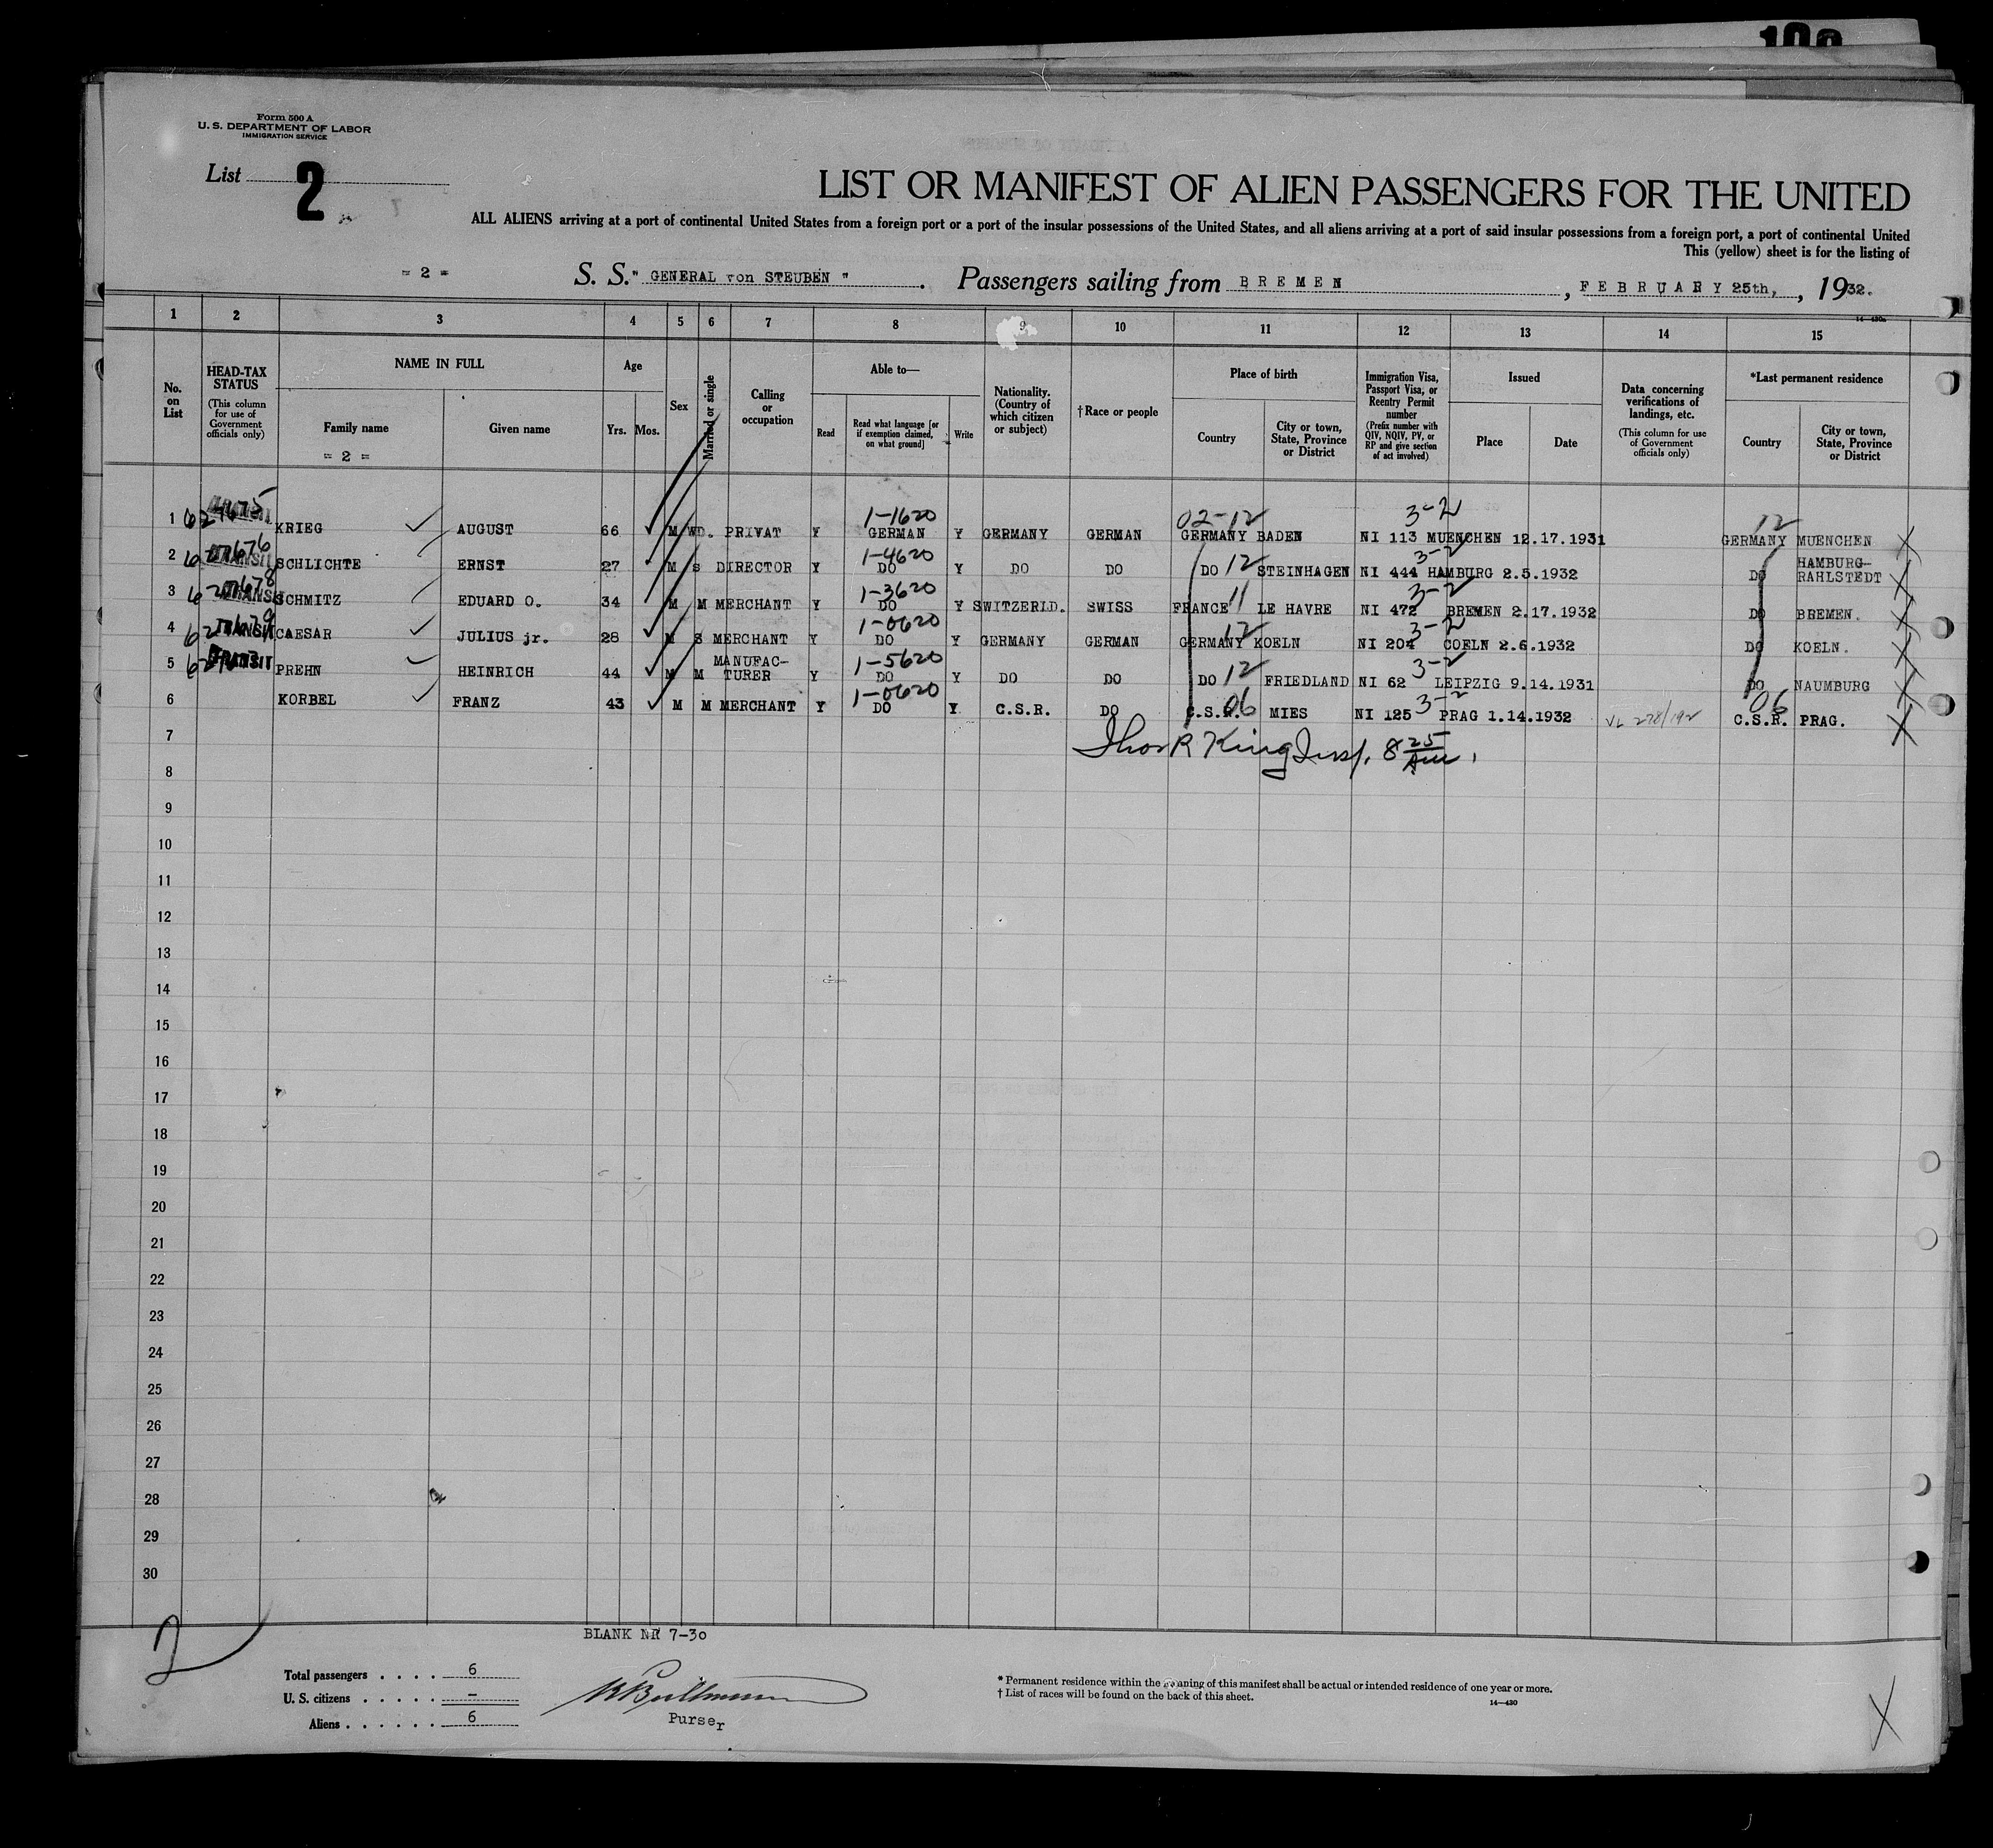 Form 500 A
U. S. DEPARTMENT OF LABOR
IMMIGRATION SERVICE
List 2
LIST OR MANIFEST OF ALIEN PASSENGERS FOR THE UNITED
ALL ALIENS arriving at a port of continental United States from a foreign port or a port of the insular possessions of the United States, and all aliens arriving at a port of said insular possessions from a foreign port, a port of continental United
This (yellow) sheet is for the listing of
= 2 = S. S. " GENERAL von STEUBEN " . Passengers sailing from BREMEN , FEBRUARY 25th, , 1932.
14—430a
1 2 3 4 5 6 7 8 9 10 11 12 13 14 15
No. on List
HEAD-TAX STATUS (This column for use of Government officials only)
NAME IN FULL Family name Given name
= 2 =
Age Yrs. Mos.
Sex
Married or single
Calling or occupation
Able to— Read Read what language [or if exemption claimed, on what ground] Write
Nationality. (Country of which citizen or subject)
†Race or people
Place of birth Country City or town, State, Province or District
Immigration Visa, Passport Visa, or Reentry Permit number (Prefix number with QIV, NQIV, PV, or RP and give section of act involved)
Issued Place Date
Data concerning verifications of landings, etc. (This column for use of Government officials only)
*Last permanent residence Country City or town, State, Province or District
1-1620 02-12 3-2 12
1 KRIEG AUGUST 66 M WD. PRIVAT Y GERMAN Y GERMANY GERMAN GERMANY BADEN NI 113 MUENCHEN 12.17.1931 GERMANY MUENCHEN
1-4620 3-2
2 TRANSIT SCHLICHTE ERNST 27 M S DIRECTOR Y DO Y DO DO DO 12 STEINHAGEN NI 444 HAMBURG 2.5.1932 DO HAMBURG-RAHLSTEDT
1-3620 3-2
3 TRANSIT SCHMITZ EDUARD O. 34 M M MERCHANT Y DO Y SWITZERLD. SWISS FRANCE 11 LE HAVRE NI 472 BREMEN 2.17.1932 DO BREMEN.
1-0620 3-2
4 TRANSIT CAESAR JULIUS jr. 28 M S MERCHANT Y DO Y GERMANY GERMAN GERMANY 12 KOELN NI 204 COELN 2.6.1932 DO KOELN.
1-5620 3-2
5 TRANSIT PREHN HEINRICH 44 M M MANUFAC-TURER Y DO Y DO DO DO 12 FRIEDLAND NI 62 LEIPZIG 9.14.1931 DO NAUMBURG
1-0620 3-2 06
6 KORBEL FRANZ 43 M M MERCHANT Y DO Y C.S.R. DO C.S.R. 06 MIES NI 125 PRAG 1.14.1932 C.S.R. PRAG.
7 Thos R King Insp. 8 25 Am.
8
9
10
11
12
13
14
15
16
17
18
19
20
21
22
23
24
25
26
27
28
29
30
2
BLANK NR 7-30
Total passengers . . . . 6
U. S. citizens . . . . . —
Aliens . . . . . . 6
Purser
* Permanent residence within the meaning of this manifest shall be actual or intended residence of one year or more.
† List of races will be found on the back of this sheet.
14—430